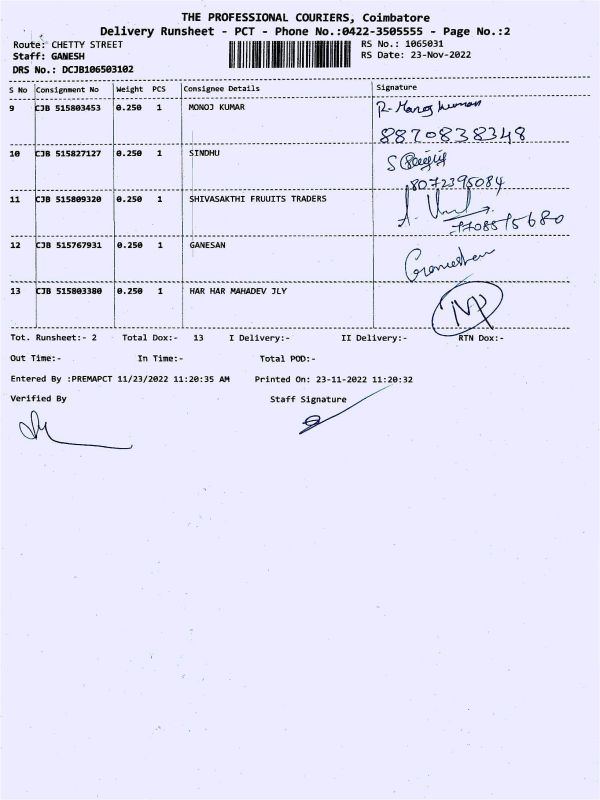 THE PROFESSIONAL COURIERS, Coimbatore
Delivery Runsheet - PCT - Phone No.:0422-3505555 - Page No.:2
Route: CHETTY STREET
RS No.: 1065031
Staff: GANESH
RS Date: 23-Nov-2022
DRS No.: DCJB106503102
S No Consignment No Weight PCS Consignee Details Signature
9 CJB 515803453 0.250 1 MONOJ KUMAR R. Manoj kumar
8870838348
10 CJB 515827127 0.250 1 SINDHU S
8072395084
11 CJB 515809320 0.250 1 SHIVASAKTHI FRUUITS TRADERS A.
7708515680
12 CJB 515767931 0.250 1 GANESAN Ganeshan
13 CJB 515803380 0.250 1 HAR HAR MAHADEV JLY NP
Tot. Runsheet:- 2 Total Dox:- 13 I Delivery:- II Delivery:- RTN Dox:-
Out Time:- In Time:- Total POD:-
Entered By :PREMAPCT 11/23/2022 11:20:35 AM Printed On: 23-11-2022 11:20:32
Verified By Staff Signature